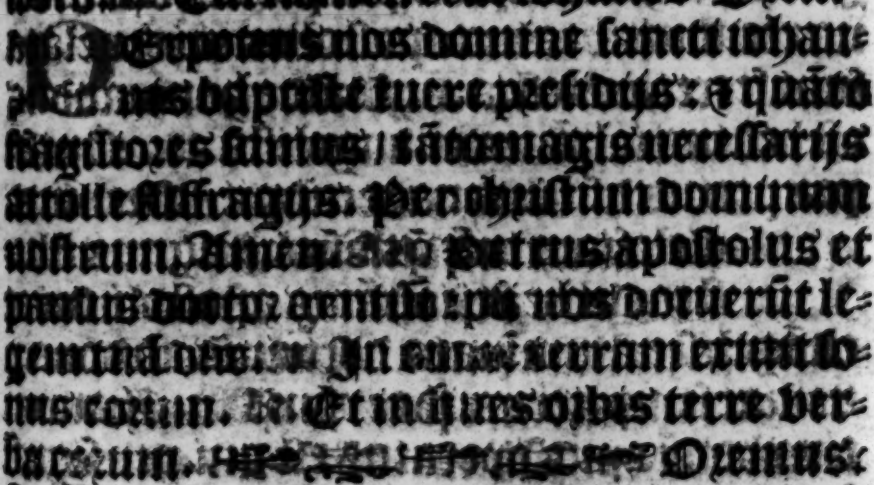 Perpetuis nos domine sancti iohan-
nis baptiste tuere presidijs: ⁊ quāto
fragiliores sumus / tāto magis necessarijs
attolle suffragijs. Per christum dominum
nostrum. Amen. Petrus apostolus et
paulus doctor gentiū: ipsi nos docuerūt le-
gem tuā dn̄e. In omnē terram exiuit so-
nus eorum. Et in fines orbis terre ver-
ba eorum. Oremus: